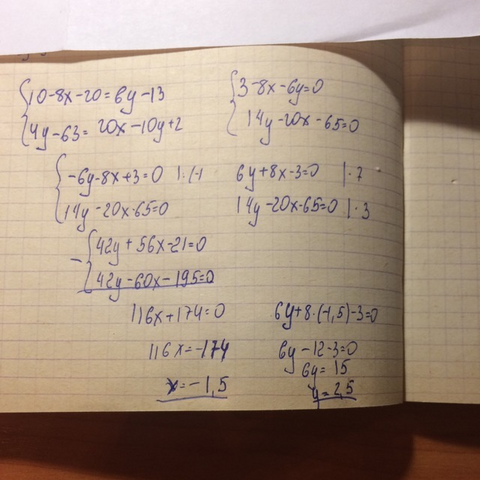 10-8x-20=6y-13
4y-63=20x-10y+2
3-8x-6y=0
14y-20x-65=0
-6y-8x+3=0 |·(-1
14y-20x-65=0
6y+8x-3=0 |·7
14y-20x-65=0 |·3
42y+56x-21=0
-
42y-60x-195=0
116x+174=0
116x=-174
x=-1,5
6y+8·(-1,5)-3=0
6y-12-3=0
6y=15
y=2,5